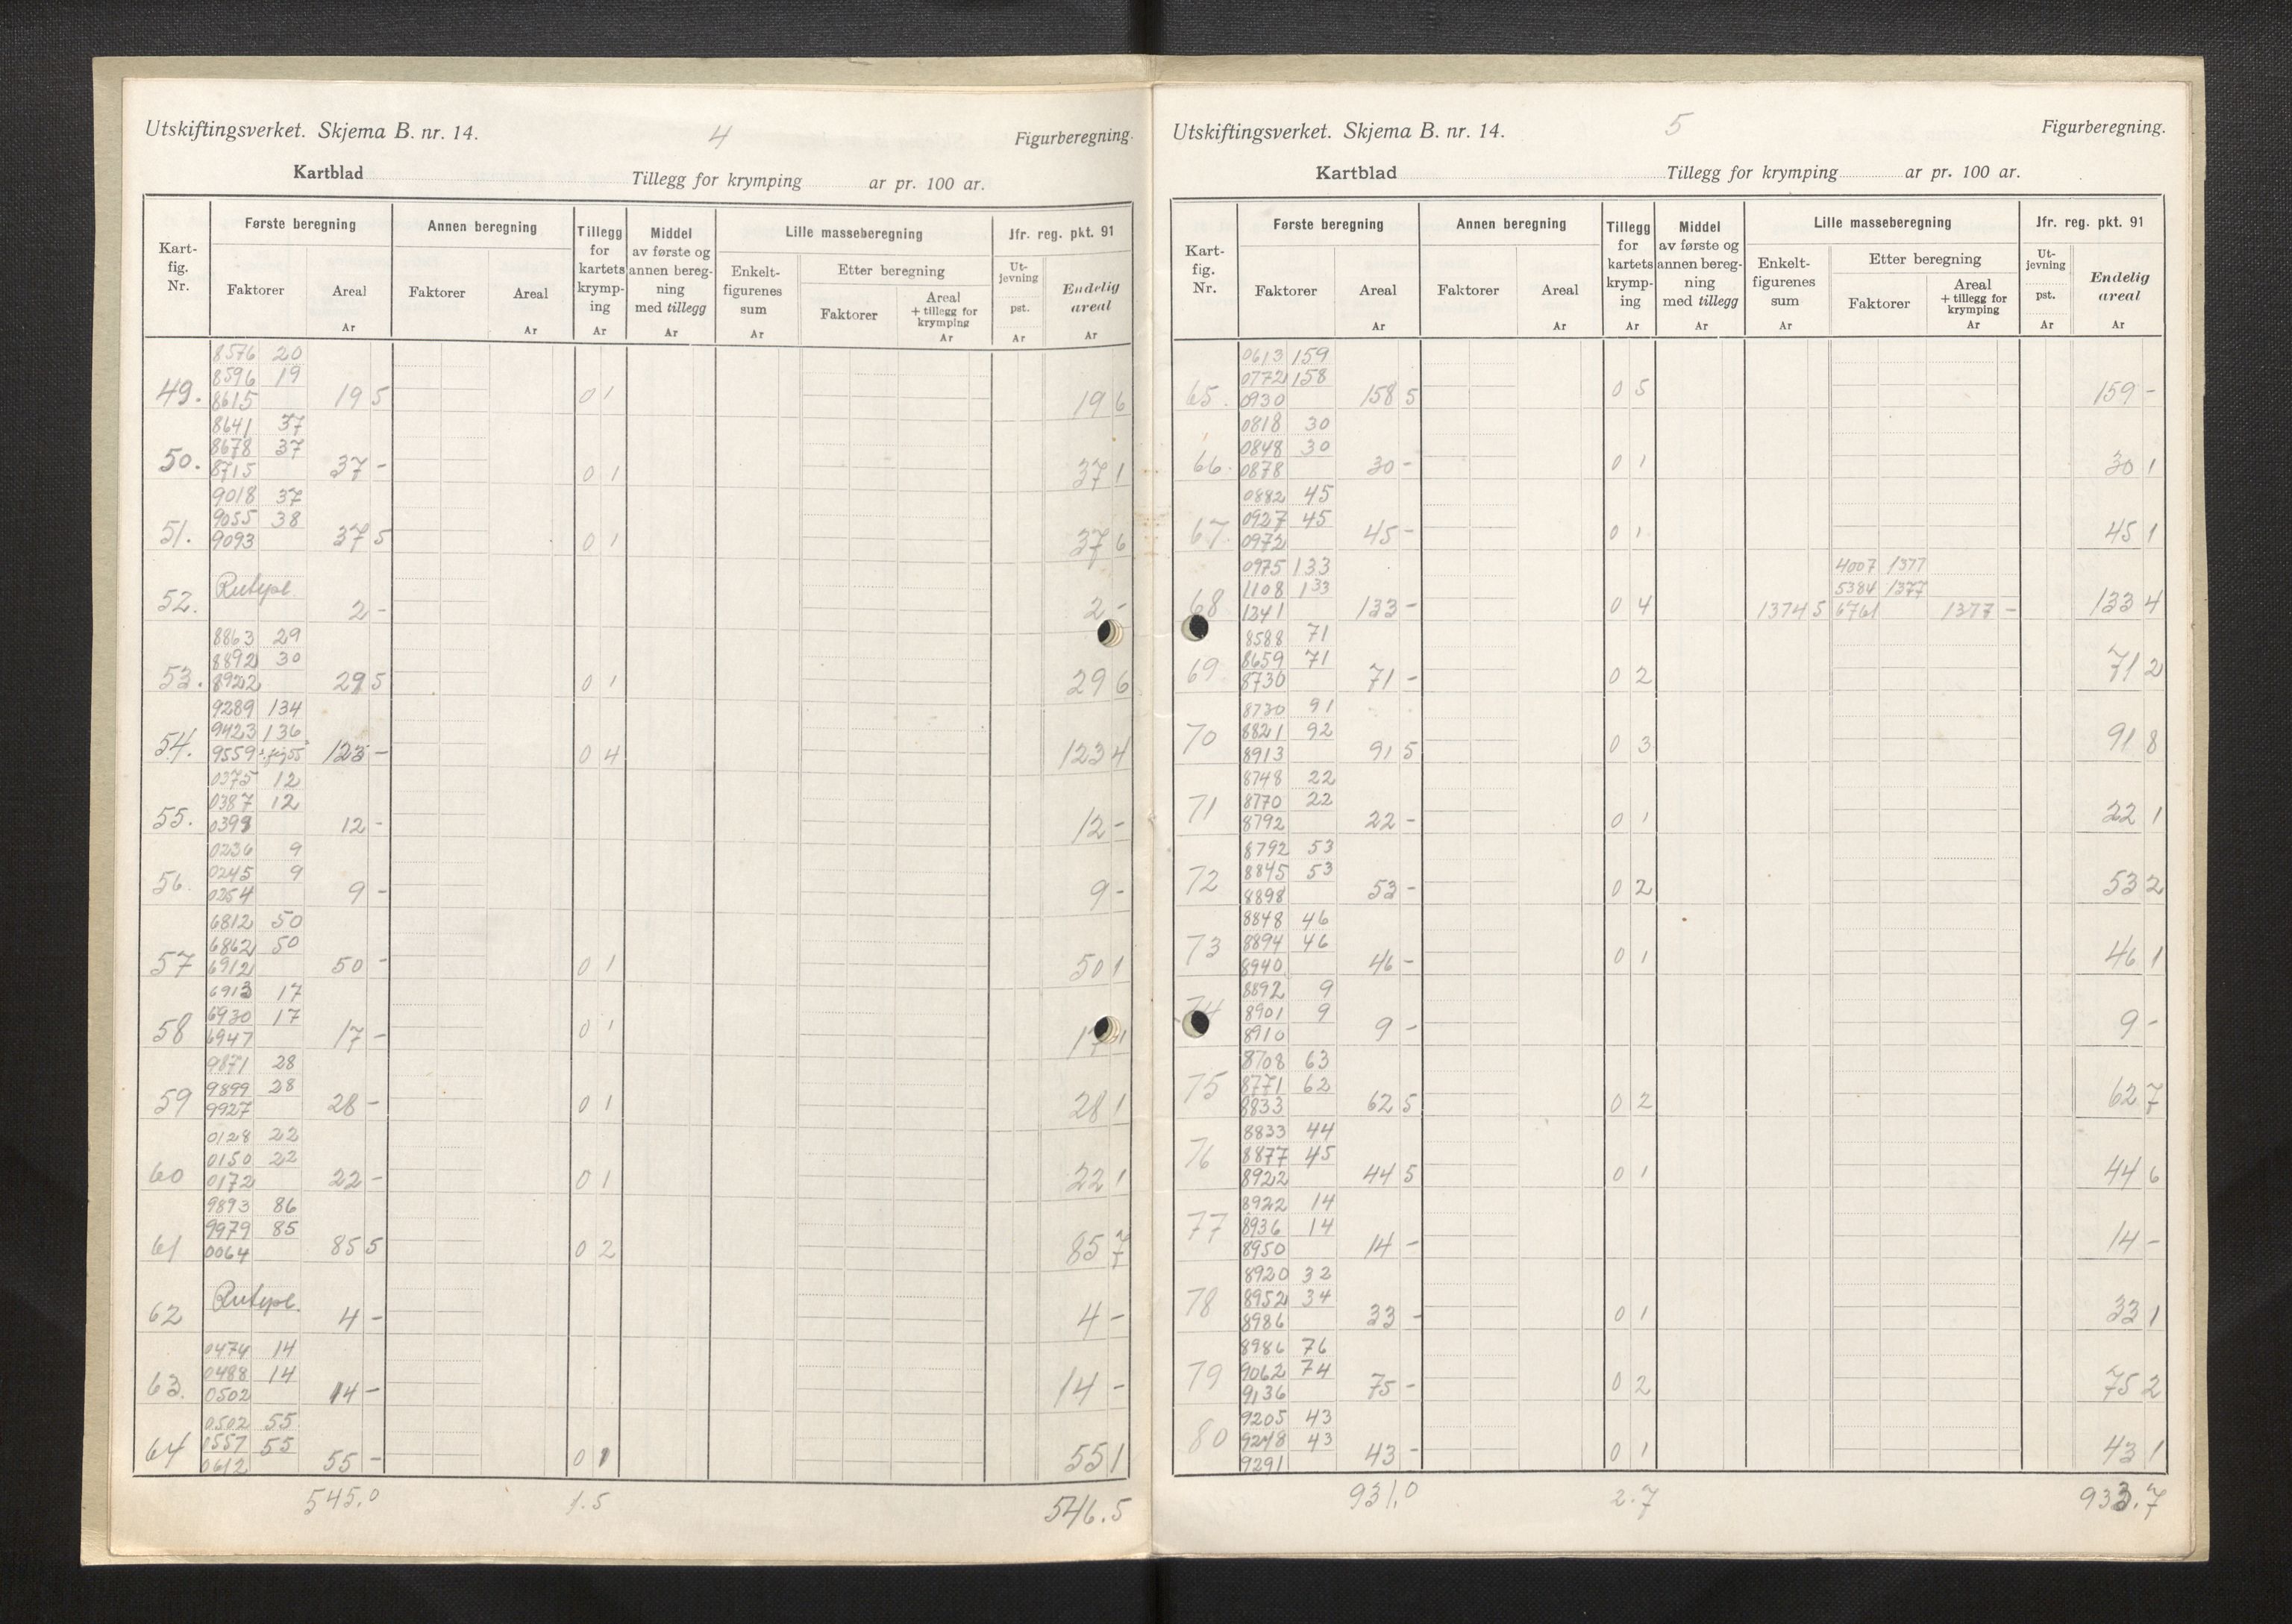 Utskiftingsverket. Skjema B. nr. 14.
4
Figurberegning.
Kartblad
Tillegg for krymping ar pr. 100 ar.
Kart-fig. Nr.
Første beregning
Annen beregning
Tillegg for kartets krymp-ing
Middel av første og annen bereg-ning med tillegg
Lille masseberegning
Jfr. reg. pkt. 91
Faktorer
Areal
Faktorer
Areal
Enkelt-figurenes sum
Etter beregning
Faktorer
Areal + tillegg for krymping
Ut-jevning
pst.
Endelig areal
Ar Ar Ar Ar Ar Ar Ar Ar
8576 20
8596 19
49. 8615 19 5 0 1 19 6
8641 37
8678 37
50. 8715 37 - 0 1 37 1
9018 37
9055 38
51. 9093 37 5 0 1 37 6
Rutepl.
52. 2 - 2 -
8863 29
8892 30
53. 8922 29 5 0 1 29 6
9289 134
9423 136
54. 9559 ÷ fig 55 123 - 0 4 123 4
0375 12
0387 12
55. 0399 12 - 12 -
0236 9
0245 9
56. 0254 9 - 9 -
6812 50
6862 50
57 6912 50 - 0 1 50 1
6913 17
6930 17
58 6947 17 - 0 1 17 1
9871 28
9899 28
59 9927 28 - 0 1 28 1
0128 22
0150 22
60 0172 22 - 0 1 22 1
9893 86
9979 85
61 0064 85 5 0 2 85 7
Rutepl.
62 4 - 4 -
0474 14
0488 14
63. 0502 14 - 14 -
0502 55
0557 55
64 0612 55 - 0 1 55 1
545.0 1.5 546.5
Utskiftingsverket. Skjema B. nr. 14.
5
Figurberegning.
Kartblad
Tillegg for krymping ar pr. 100 ar.
Kart-fig. Nr.
Første beregning
Annen beregning
Tillegg for kartets krymp-ing
Middel av første og annen bereg-ning med tillegg
Lille masseberegning
Jfr. reg. pkt. 91
Faktorer
Areal
Faktorer
Areal
Enkelt-figurenes sum
Etter beregning
Faktorer
Areal + tillegg for krymping
Ut-jevning
pst.
Endelig areal
Ar Ar Ar Ar Ar Ar Ar Ar
0613 159
0772 158
65. 0930 158 5 0 5 159 -
0818 30
0848 30
66. 0878 30 - 0 1 30 1
0882 45
0927 45
67. 0972 45 - 0 1 45 1
0975 133 4007 1377
1108 133 5384 1377
68 1241 133 - 0 4 1374 5 6761 1377 - 133 4
8588 71
8659 71
69 8730 71 - 0 2 71 2
8730 91
8821 92
70 8913 91 5 0 3 91 8
8748 22
8770 22
71 8792 22 - 0 1 22 1
8792 53
8845 53
72 8898 53 - 0 2 53 2
8848 46
8894 46
73 8940 46 - 0 1 46 1
8892 9
8901 9
74 8910 9 - 9 -
8708 63
8771 62
75 8833 62 5 0 2 62 7
8833 44
8877 45
76 8922 44 5 0 1 44 6
8922 14
8936 14
77 8950 14 - 14 -
8920 32
8952 34
78 8986 33 - 0 1 33 1
8986 76
9062 74
79 9136 75 - 0 2 75 2
9205 43
9248 43
80 9291 43 - 0 1 43 1
931.0 2.7 933.7